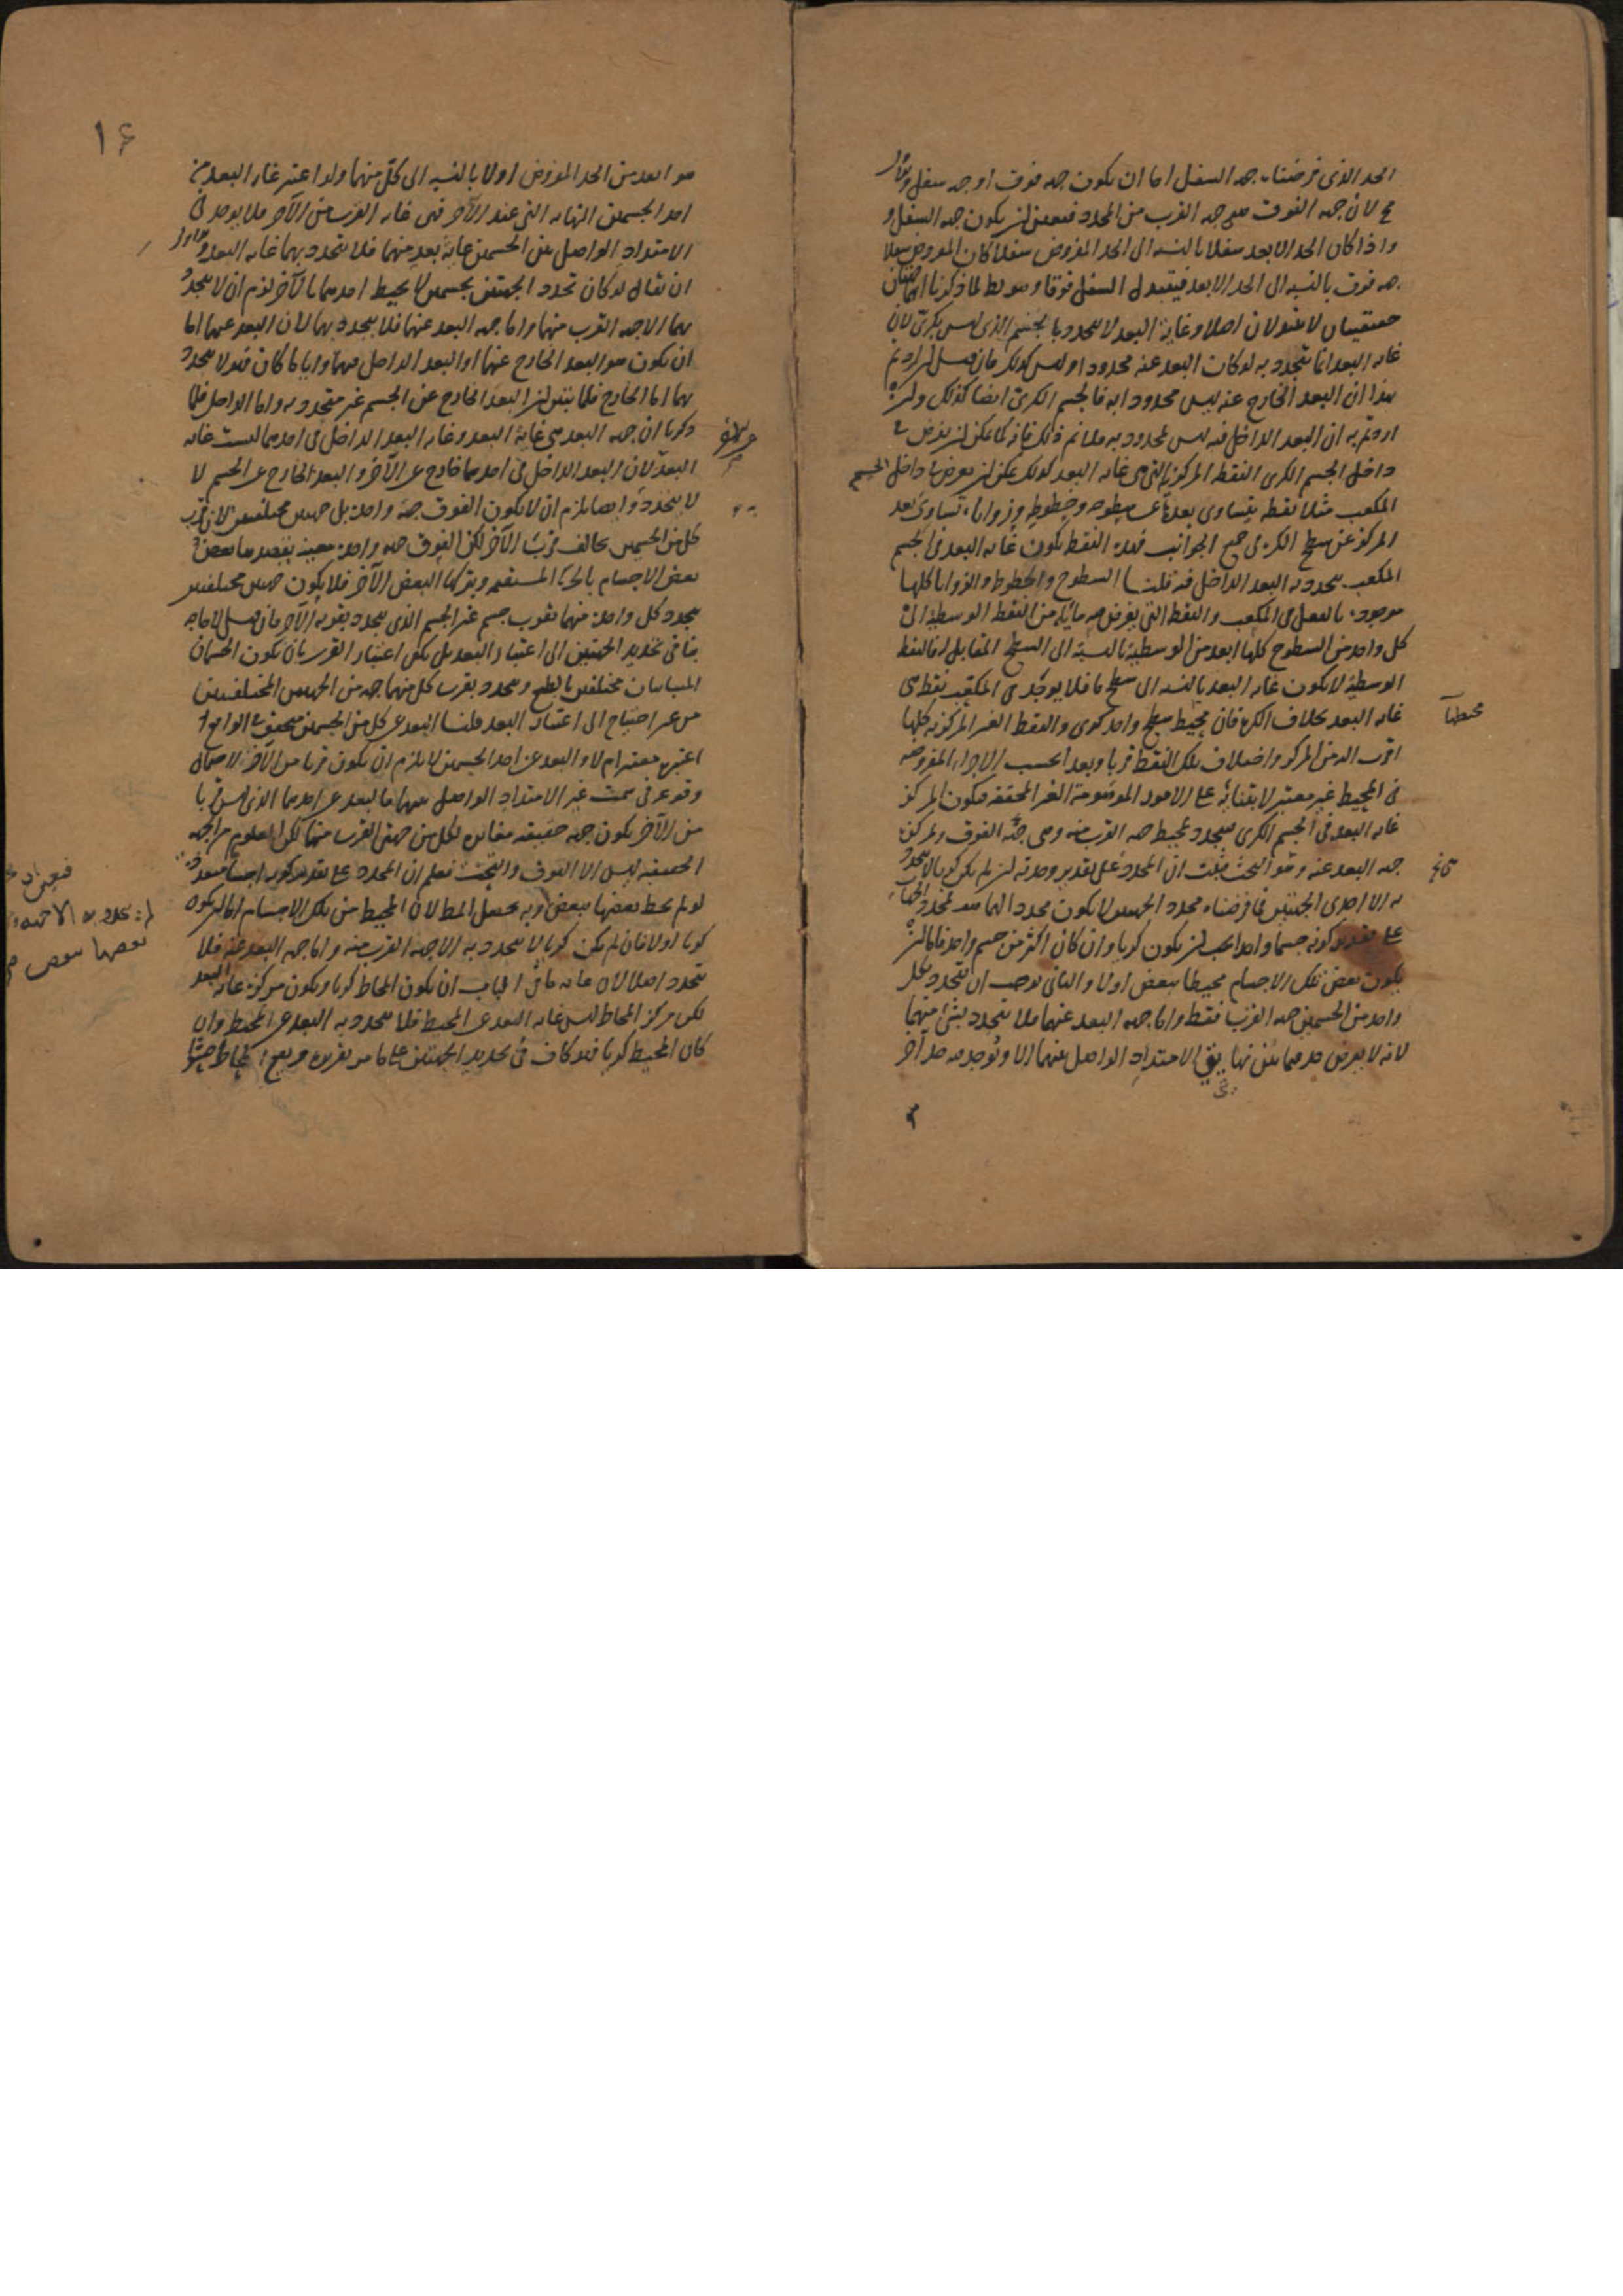 الحد الذى فرضناه جهة السفل اما ان يكون جهة فوق او جهة سفل والاول
مح لان جهة الفوق هى جهة القرب من المحدد فتعين ان يكون جهة السفل و
واذا كان الحد الابعد سفلا بالنسبة الى الحد المفروض سفلا كان المفروض سفلا
جهة فوق بالنسبة الى الحد الابعد فيتبدل السفل فوقا وهو بط لما ذكرنا انهما جهتان
حقيقيتان لا تتبدلان اصلا وغاية البعد لا يتحدد بالجسم الذى ليس بكرى لان
غاية البعد انما يتحدد به لو كانت البعد عنه محدودا وليس كذلك فان قيل ان اردتم
بهذا ان البعد الخارج عنه ليس محدودا به فالجسم الكرى ايضا كذلك وان
اردتم به ان البعد الداخل فيه ليس بمحدود به فلا تم ذلك فانه كما يمكن ان يفرض فى
داخل الجسم الكرى النقطة المركزية التى هى غاية البعد كذلك يمكن ان يفرض فى داخل الجسم
المكعب مثلا نقطة يتساوى بعدها عن سطوحه وخطوطه وزواياه تساوى بعد
المركز عن سطح الكرة فى جميع الجوانب فهذه النقطة يكون غاية البعد فى الجسم
المكعب يتحدد به البعد الداخل فيه قلنا السطوح والخطوط والزوايا كلها
موجودة بالفعل فى المكعب والنقط التى يفرض فيه مائلة من النقطة الوسطية الى
كل واحد من السطوح كلها ابعد من الوسطية بالنسبة الى السطح المقابل لها فالنقطة
الوسطية لا يكون غاية البعد بالنسبة الى سطح ما فلا يوجد فى المكعب نقطة هى
غاية البعد بخلاف الكرة فان محيطها سطح واحد كروى والنقط الغير المركزية كلها
اقرب اليه من المركز واختلاف تلك النقط قربا وبعدا بحسب الاجزاء المفروضة
فى المحيط غير معتبر لابتنائه على الامور الموهومة الغير المحققة فيكون المركز
غاية البعد فى الجسم الكرى فيتحدد بمحيطه جهة القرب منه وهى جهة الفوق وبمركزه
جهة البعد عنه وهو التحت فثبت ان المحدد على تقدير وحدته ان لم يكن كريا لا يتحدد
به الا احدى الجهتين فما فرضناه محدد الجهتين لا يكون محددا لهما
على تقدير كونه جسما واحدا يجب ان يكون كريا وان كان اكثر من جسم واحد فاما ان
يكون بعض تلك الاجسام محيطا ببعض اولا والثانى يوجب ان يتحدد بكل
واحد من الجسمين جهة القرب فقط واما جهة البعد عنهما فلا يتحدد بشئ منهما
لانه لا يفرض حد فيما بين نهايتى الامتداد الواصل بينهما الا ويوجد فيه حد آخر
محيطها
١۶
هو ابعد من الحد المفروض اولا بالنسبة الى كل منهما ولو اعتبر غاية البعد من
احد الجسمين النهاية التى عند الآخر فهى غاية القرب من الآخر فلا يوجد فى
الامتداد الواصل بين الجسمين غاية بعد منهما فلا يتحدد بهما غاية البعد
ان يقال لو كان تحدد الجهتين بجسمين لا يحيط احدهما بالآخر لزم ان لا يتحدد
بهما الا جهة القرب منهما واما جهة البعد عنهما فلا يتحدد بهما لان البعد عنهما اما
ان يكون هو البعد الخارج عنهما او البعد الداخل فيهما وايا ما كان فهو لا يتحدد
بهما اما الخارج فلما بين ان البعد الخارج عن الجسم غير متحدد به واما الداخل فلما
ذكرنا ان جهة البعد هى غاية البعد وغاية البعد الداخل فى احدهما ليست غاية
البعد لان البعد الداخل فى احدهما خارج عن الآخر والبعد الخارج عن الجسم لا
لا يتحدد وايضا يلزم ان لا يكون الفوق جهة واحدة بل جهتين مختلفتين لان قرب
كل من الجسمين يخالف قرب الآخر لكن الفوق جهة واحدة معينة يقصدها بعض
بعض الاجسام بالحركة المستقيمة ويتركها البعض الآخر فلا يكون جهتين مختلفتين
يتحدد كل واحدة منهما بقرب جسم غير الجسم الذى يتحدد بقربه الآخر فان قيل لا حاجة
بنا فى تحديد الجهتين الى اعتبار البعد بل يكفى اعتبار القرب بان يكون الجسمان
المتباينان مختلفين بالطبع ويتحدد بقرب كل منهما جهة من الجهتين المختلفتين
من غير احتياج الى اعتبار البعد قلنا البعد عن كل من الجسمين متحقق فى الواقع
اعتبره معتبر ام لا والبعد عن احد الجسمين لا يلزم ان يكون قربا من الآخر لاحتمال
وقوعه فى سمت غير الامتداد الواصل بينهما فالبعد عن احدهما الذى ليس قربا
من الآخر يكون جهة حقيقية مغايرة لكل من جهتى القرب منهما لكن المعلوم من الجهة
الحقيقية ليس الا الفوق والتحت فعلم ان المحدد على تقدير كونه اجساما متعددة
لو لم يحط بعضها ببعض وبه يحصل المط لان المحيط من تلك الاجسام اما ان يكون
كريا اولا فان لم يكن كريا لا يتحدد به الا جهة القرب منه واما جهة البعد عنه فلا
يتحدد اصلا لان غاية ما فى الباب ان يكون المحاط كريا ويكون مركزه غاية البعد
لكن مركز المحاط ليس غاية البعد عن المحيط فلا يتحدد به البعد عن المحيط وان
كان المحيط كريا فهو كاف فى تحديد الجهتين على ما مر تقريره ويقع المحاط حشوا